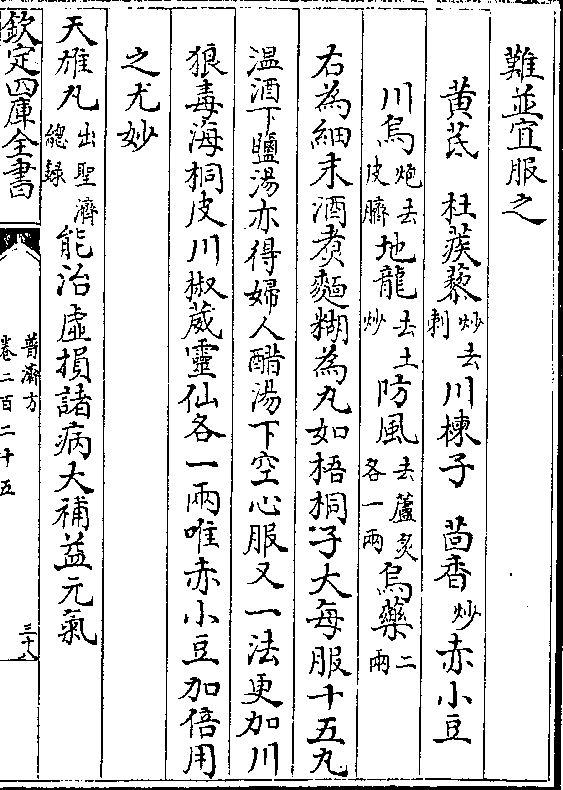 難並宜服之
黄芪 杜蒺藜炒去刺 川楝子 茴香炒 赤小豆
川烏炮去皮臍 地龍去土炒 防風去蘆炙各一兩 烏藥二兩
右為細末酒煮麵糊為丸如梧桐子大每服十五丸
温酒下鹽湯亦得婦人醋湯下空心服又一法更加川
狼毒海桐皮川椒葳靈仙各一兩唯赤小豆加倍用
之尤妙
天雄丸出聖濟總録 能治虚損諸病大補益元氣
欽定四庫全書
普濟方
卷二百二十五
三十八